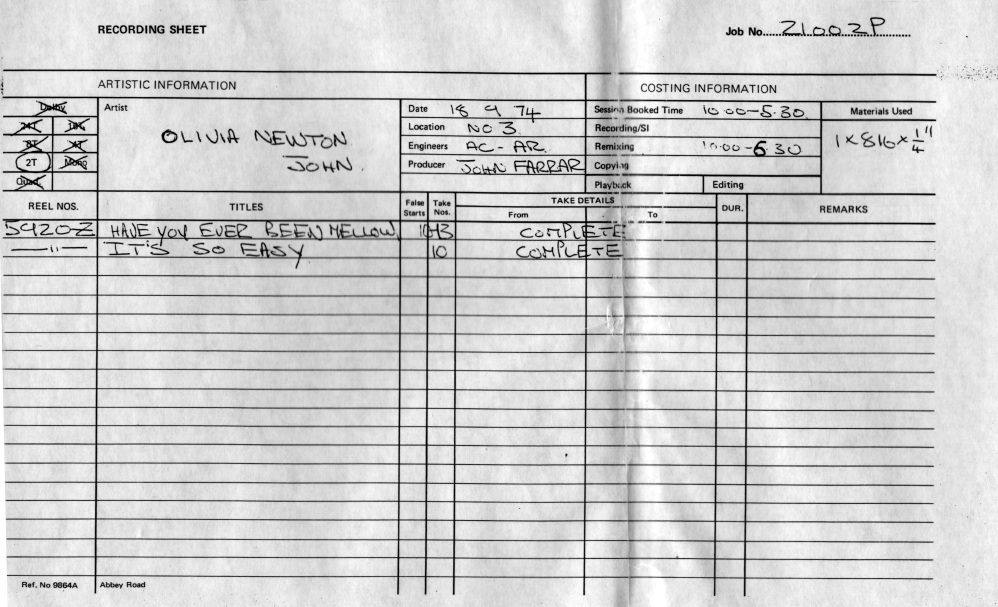 RECORDING SHEET
Job No. 21002P
ARTISTIC INFORMATION
COSTING INFORMATION
Dolby
24T 16T
8T 4T
2T Mono
Quad
Artist
OLIVIA NEWTON
JOHN.
Date 18 9 74
Location NO 3.
Engineers AC - AR.
Producer JOHN FARRAR
Session Booked Time 10.00-5.30.
Recording/SI
Remixing 10.00-6 30
Copying
Playback
Editing
Materials Used
1×816×1/4"
REEL NOS.
TITLES
False Starts
Take Nos.
TAKE DETAILS
From To
DUR.
REMARKS
5920-Z HAVE YOU EVER BEEN MELLOW COMPLETE
—"— IT'S SO EASY 10 COMPLETE
Ref. No 9864A Abbey Road